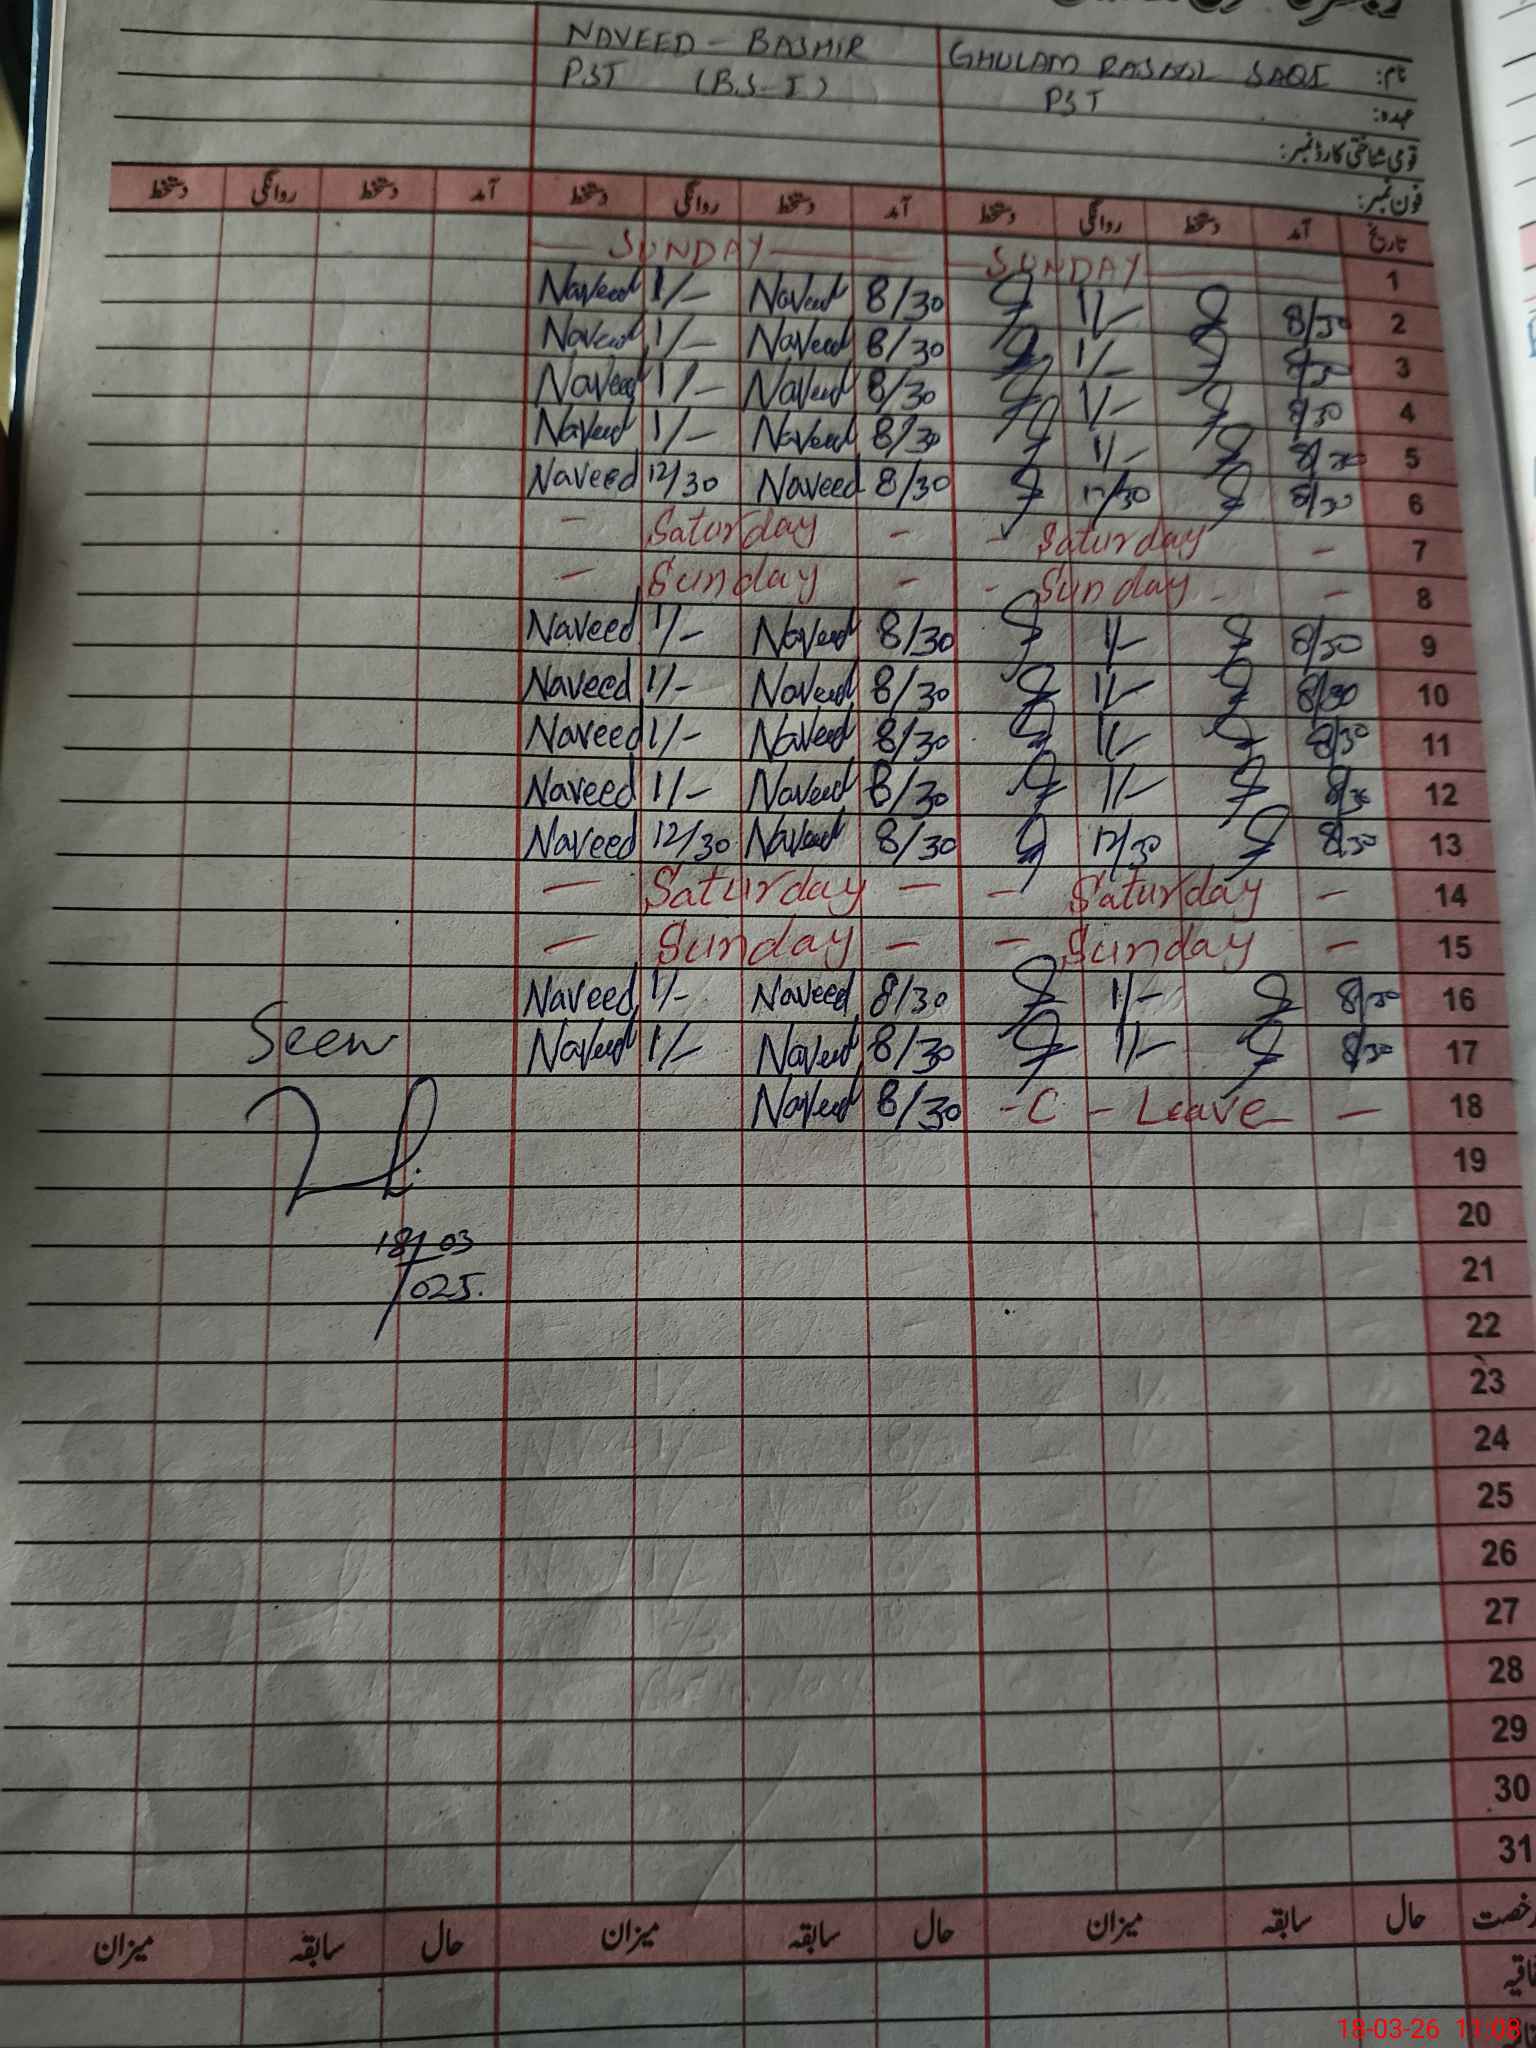 NAVEED - BASHIR GHULAM RASOOL SAQI نام:
PST (B.S-I) PST عہدہ:
قومی شناختی کارڈ نمبر:
فون نمبر:
تاریخ آمد دستخط روانگی دستخط آمد دستخط روانگی دستخط آمد دستخط روانگی دستخط
— SUNDAY — — SUNDAY — 1
Naveed 1/- Naveed 8/30 1/- 8/30 2
Naveed 1/- Naveed 8/30 1/- 8/30 3
Naveed 1/- Naveed 8/30 1/- 8/30 4
Naveed 1/- Naveed 8/30 1/- 8/30 5
Naveed 12/30 Naveed 8/30 12/30 8/30 6
- Saturday - - Saturday - 7
- Sunday - - Sunday - 8
Naveed 1/- Naveed 8/30 1/- 8/30 9
Naveed 1/- Naveed 8/30 1/- 8/30 10
Naveed 1/- Naveed 8/30 1/- 8/30 11
Naveed 1/- Naveed 8/30 1/- 8/30 12
Naveed 12/30 Naveed 8/30 12/30 8/30 13
- Saturday - - Saturday - 14
- Sunday - - Sunday - 15
Naveed 1/- Naveed 8/30 1/- 8/30 16
Seen Naveed 1/- Naveed 8/30 1/- 8/30 17
Naveed 8/30 - C - Leave - 18
19
20
18/03 21
/025. 22
23
24
25
26
27
28
29
30
31
رخصت حال سابقہ میزان حال سابقہ میزان حال سابقہ میزان
18-03-26 11:08